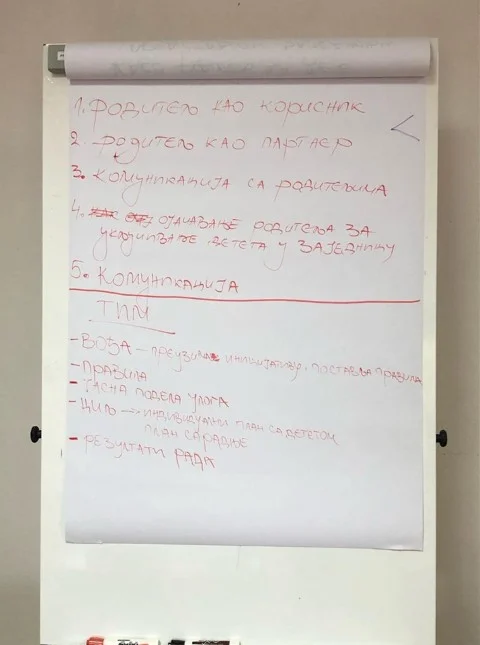 1. РОДИТЕЉ КАО КОРИСНИК
2. РОДИТЕЉ КАО ПАРТНЕР
3. КОМУНИКАЦИЈА СА РОДИТЕЉИМА
4. ОЈАЧАВАЊЕ РОДИТЕЉА ЗА
УКЉУЧИВАЊЕ ДЕТЕТА У ЗАЈЕДНИЦУ
5. КОМУНИКАЦИЈА
ТИМ
- ВОЂА - ПРЕУЗИМА ИНИЦИЈАТИВУ, ПОСТАВЉА ПРАВИЛА
- ПРАВИЛА
- ЈАСНА ПОДЕЛА УЛОГА
- ЦИЉ → ИНДИВИДУАЛНИ ПЛАН СА ДЕТЕТОМ
ПЛАН САРАДЊЕ
- РЕЗУЛТАТИ РАДА